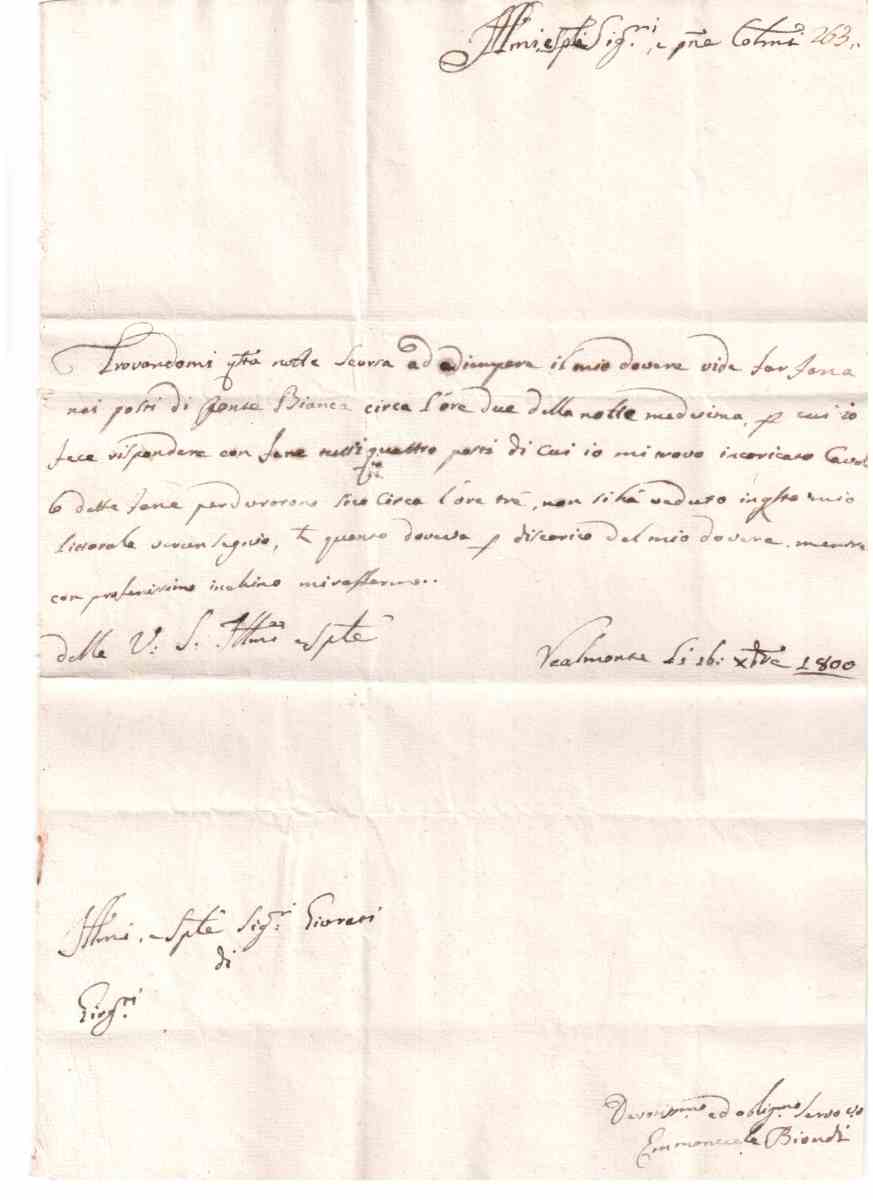 Ill.mi e Sp.li Sig.ri, e p̃ne Col.mi 263..
Trovandomi q̃ta notte scorsa ad adimpere il mio dovere vide far fona
nei posti di Ponte Bianca circa l'ore due della notte medesima, p cui io
fece rispondere con fone nelli quattro posti di cui io mi trovo incaricato
e dette fone perdurorono sino circa l'ore tre, non si há veduto in q̃sto mio
littorale verun segnio, quanto doveva p discarico del mio dovere. mentre
con profonissimo inchino mi raffermo..
delle V: S: Ill.me e Sp.le
Realmonte li 16: Xbre 1800
Ill.mi, e Sp.li Sig.ri Giurati
di
Girg.ti
Devotissimo ed oblig.mo servo v.o
Emmanuele Biondi